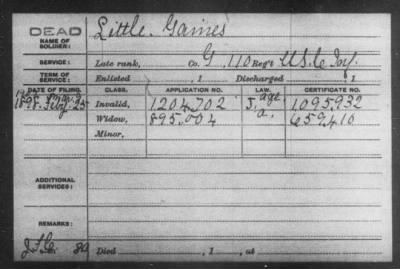 DEAD Little Gaines
NAME OF
SOLDIER:
SERVICE: Late rank, Co. G, 110 Reg't U.S.C. Inf.
TERM OF
SERVICE: Enlisted , 1 Discharged , 1
DATE OF FILING. CLASS. APPLICATION NO. LAW. CERTIFICATE NO.
Invalid, 1204702 J. age 1095932
Widow, 895.004 a. 659410
Minor,
ADDITIONAL
SERVICES:
REMARKS:
Died , 1 , at